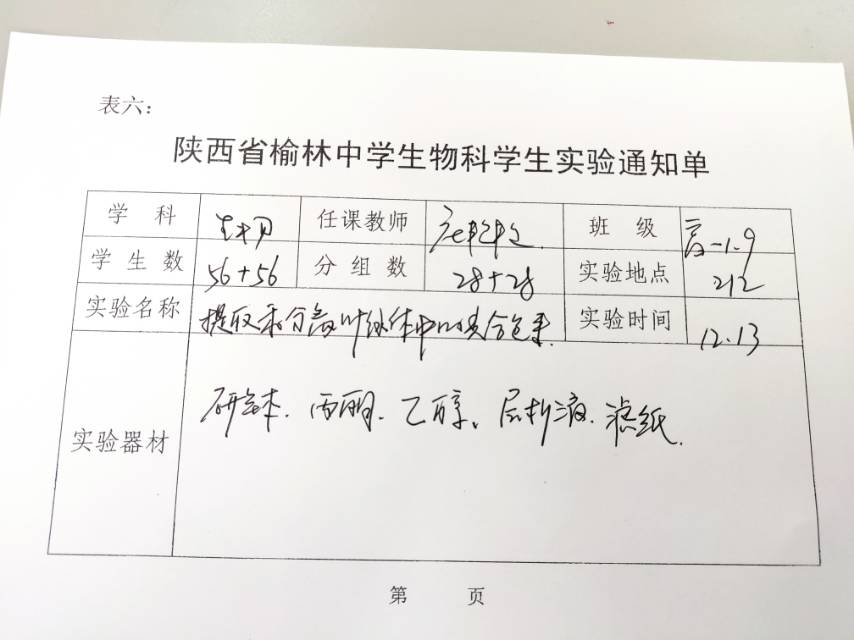 表六：
陕西省榆林中学生物科学生实验通知单
学 科 生物 任课教师 班 级 高一1.9
学 生 数 56+56 分 组 数 28+28 实验地点 212
实验名称 提取和分离叶绿体中的光合色素 实验时间 12.13
实验器材 研钵. 丙酮. 乙醇. 层析液. 滤纸.
第 页